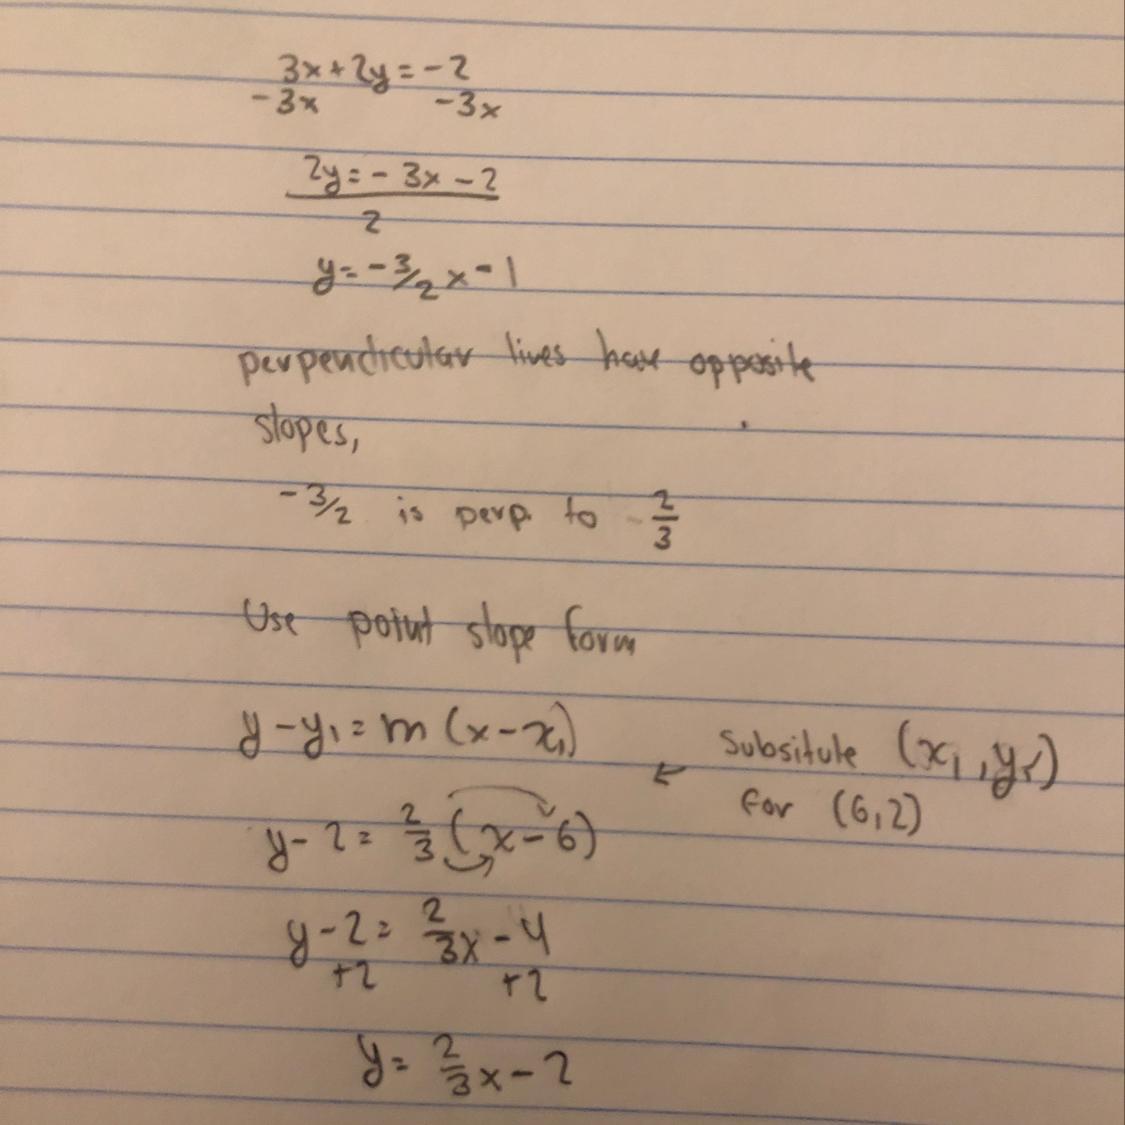 3x+2y=-2
-3x -3x
2y=-3x-2
2
y=-3/2x-1
perpendicular lines have opposite
slopes,
-3/2 is perp. to 2/3
Use point slope form
y-y₁=m(x-x₁)
Subsitute (x₁,y₁)
for (6,2)
←
y-2=2/3(x-6)
y-2=2/3x-4
+2 +2
y=2/3x-2